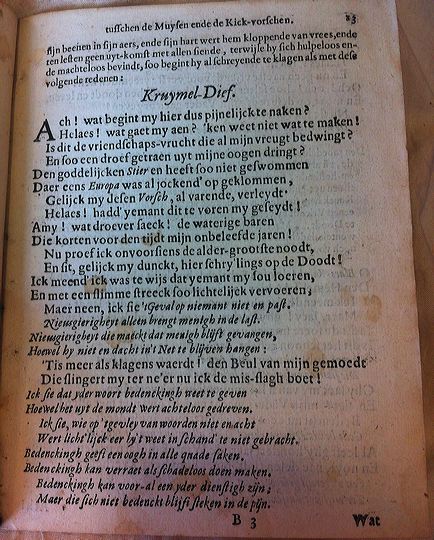 tusschen de Muysen ende de Kick-vorschen. 23
sijn beenen in sijn aers, ende sijn hart wert hem kloppende van vrees, ende
ten lesten geen uyt-komst met allen siende, terwijle hy sich hulpeloos en-
de machteloos bevindt, soo begint hy al schreyende te klagen als met dese
volgende redenen:
Kruymel-Dief.
Ach! wat begint my hier dus pijnelijck te naken?
Helaes! wat gaet my aen? 'ken weet niet wat te maken!
Is dit de vriendschaps-vrucht die al mijn vreugt bedwingt?
En soo een droef getraen uyt mijne oogen dringt?
Den goddelijcken Stier en heeft soo niet geswommen
Daer eens Europa was al jockend' op geklommen,
Gelijck my desen Vorsch, al varende, verleydt.
Helaes! hadd' yemant dit te voren my geseydt!
Amy! wat droever saeck! de waterige baren
Die korten voor den tijdt mijn onbeleefde jaren!
Nu proef ick onvoorsiens de alder-grootste noodt,
En sit, gelijck my dunckt, hier schry'lings op de Doodt!
Ick meend' ick was te wijs dat yemant my sou loeren,
En met een slimme streeck soo lichtelijck vervoeren;
Maer neen, ick sie 't Geval op niemant niet en past.
Nieusgierigheyt alleen brengt menigh in de last.
Nieusgierigheyt die maeckt dat menigh blijft gevangen,
Hoewel hy niet en dacht in't Net te blijven hangen:
'Tis meer als klagens waerdt! den Beul van mijn gemoedt
Die slingert my ter ne'er nu ick de mis-slagh boet!
Ick sie dat yder woort bedenckingh weet te geven
Hoewel het uyt de mondt wert achteloos gedreven.
Ick sie, wie op 'tgevley van woorden niet en acht
Wert licht'lijck eer hy't weet in schand' te niet gebracht.
Bedenckingh geeft een oogh in alle quade saken.
Bedenckingh kan verraet als schadeloos doen maken.
Bedenckingh kan voor-al een yder dienstigh zijn;
Maer die sich niet bedenckt blijft steken in de pijn.
B 3 Wat